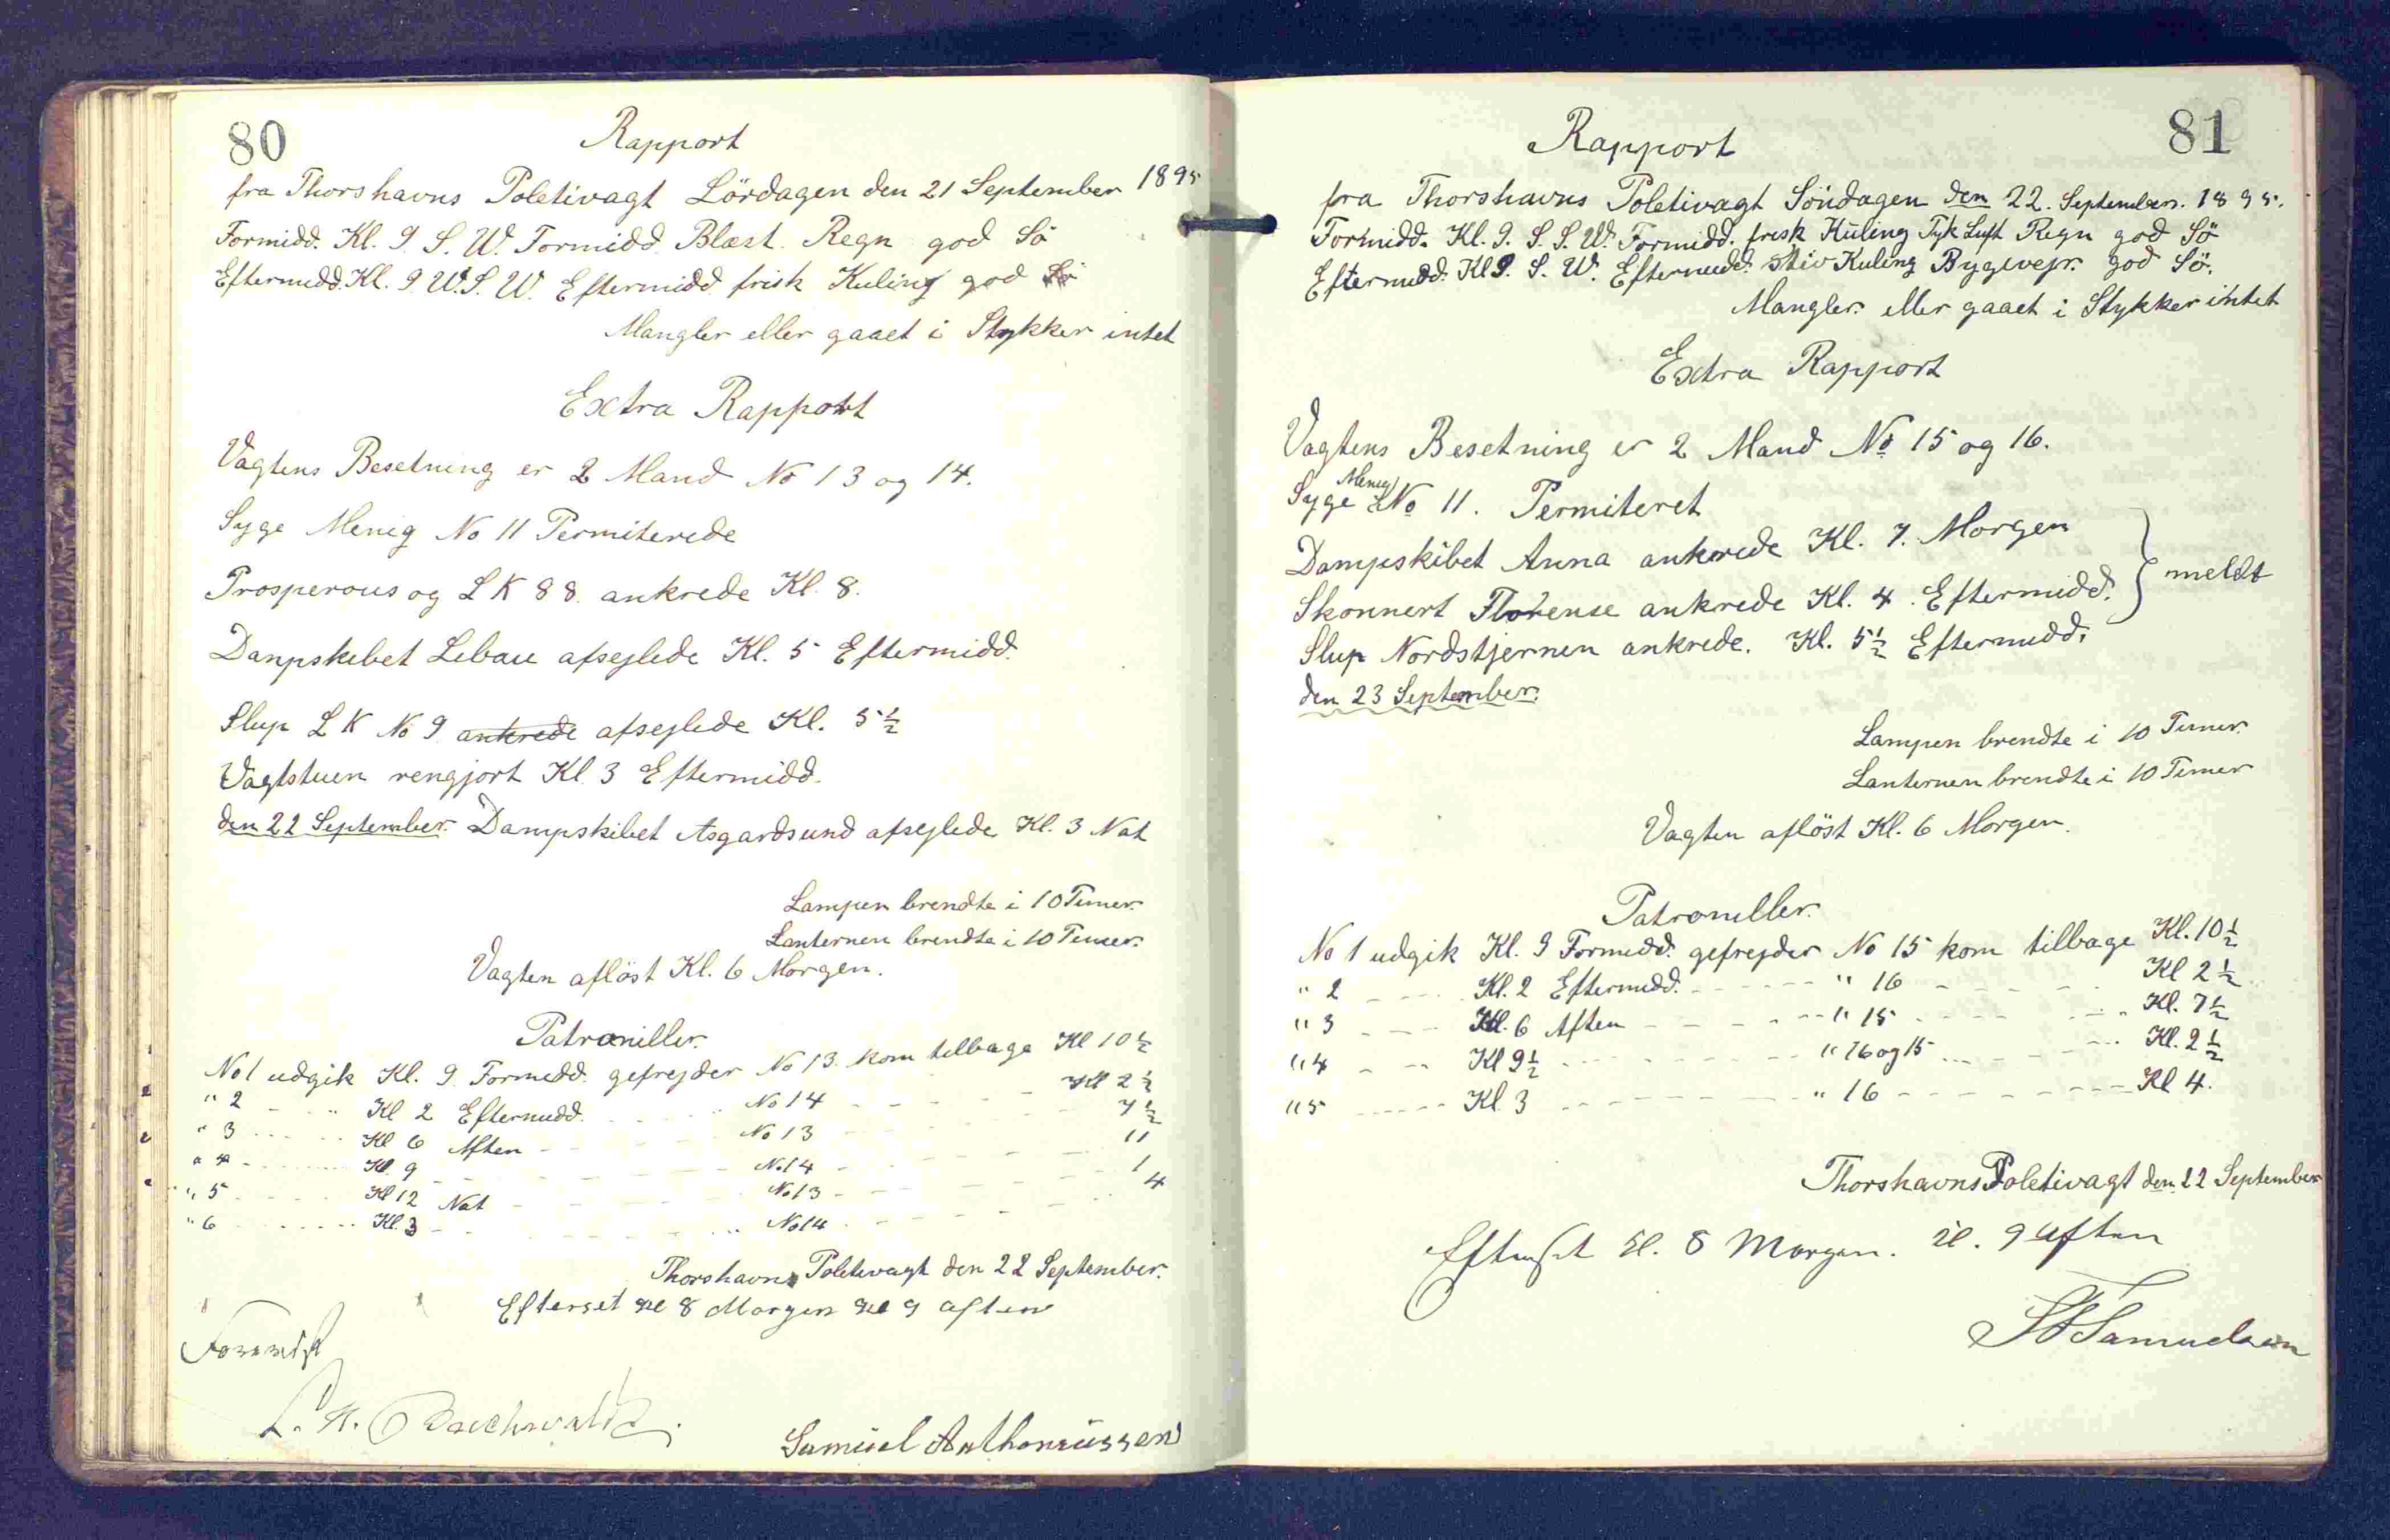 80
Rapport
fra Thorshavns Poletivagt Lördagen den 21 September 1895
Formidd. Kl. 9 S. W. Formidd. Blæst. Regn god Sö
Eftermidd. Kl. 9 W.S.W. Eftermidd frisk Kuling god Sö
Mangler eller gaaet i Stykker intet
Extra Rapport
Vagtens Besetning er 2 Mand No 13 og 14.
Syge Menig No 11 Permiterede
Prosperous og L K 88. ankrede Kl. 8.
Danpskibet Libau afsejlede Kl. 5 Eftermidd.
Slup L K No 9 ankrede afsejlede Kl. 5 1/2
Vagtstuen rengjort Kl. 3 Eftermidd.
den 22 September. Dampskibet Asgardsund afsejlede Kl. 3 Nat
Lampen brendte i 10 Timer.
Lanternen brendte i 10 Timer.
Vagten aflöst Kl. 6 Morgen.
Patroniller.
No 1 udgik Kl. 9 Formidd. gefrejder No 13. kom tilbage Kl 10 1/2
" 2 - - " Kl 2 Eftermidd. No 14 - - - Kl 2 1/2
" 3 - - - Kl 6 Aften - - No 13 - - - 7 1/2
" 4 - - - Kl. 9 - - - No 14 - - - 11
" 5 - - - Kl 12 Nat - - - No 13 - - - 1
" 6 - - - Kl. 3 - - - No 14 - - - 4
Thorshavns Poletivagt den 22 September.
Efterset Kl 8 Morgen Kl 9 aften
Forevist
Samuel Anthoniussen
81
Rapport
fra Thorshavns Poletivagt Söndagen den 22. September. 1895.
Formidd. Kl. 9. S. S. W. Formidd. frisk Kuling Tyk Luft Regn god Sö
Eftermidd. Kl 9. S. W. Eftermidd. Stiv Kuling Bygevejr. god Sö.
Mangler. eller gaaet i Stykker intet
Extra Rapport
Vagtens Besetning er 2 Mand No 15 og 16.
Syge Menig No 11. Permiteret
Dampskibet Anna ankrede Kl. 7. Morgen
Skonnert Florense ankrede Kl. 4. Eftermidd. } meldt
Slup Nordstjernen ankrede. Kl. 5 1/2 Eftermidd.
den 23 September.
Lampen brendte i 10 Timer.
Lanternen brendte i 10 Timer
Vagten aflöst Kl. 6 Morgen.
Patroniller.
No 1 udgik Kl. 9 Formidd. gefrejder No 15 kom tilbage Kl. 10 1/2
" 2 - - - Kl. 2 Eftermidd. - - - " 16 - - - Kl 2 1/2
" 3 - - - Kl. 6 Aften - - - " 15 - - - Kl. 7 1/2
" 4 - - - Kl 9 1/2 - - - " 16 og 15 - - - Kl. 2 1/2
" 5 - - - Kl. 3 - - - " 16 - - - Kl 4.
Thorshavns Poletivagt den 22 September
Efterset Kl. 8 Morgen. Kl. 9 Aften
Samuelsen